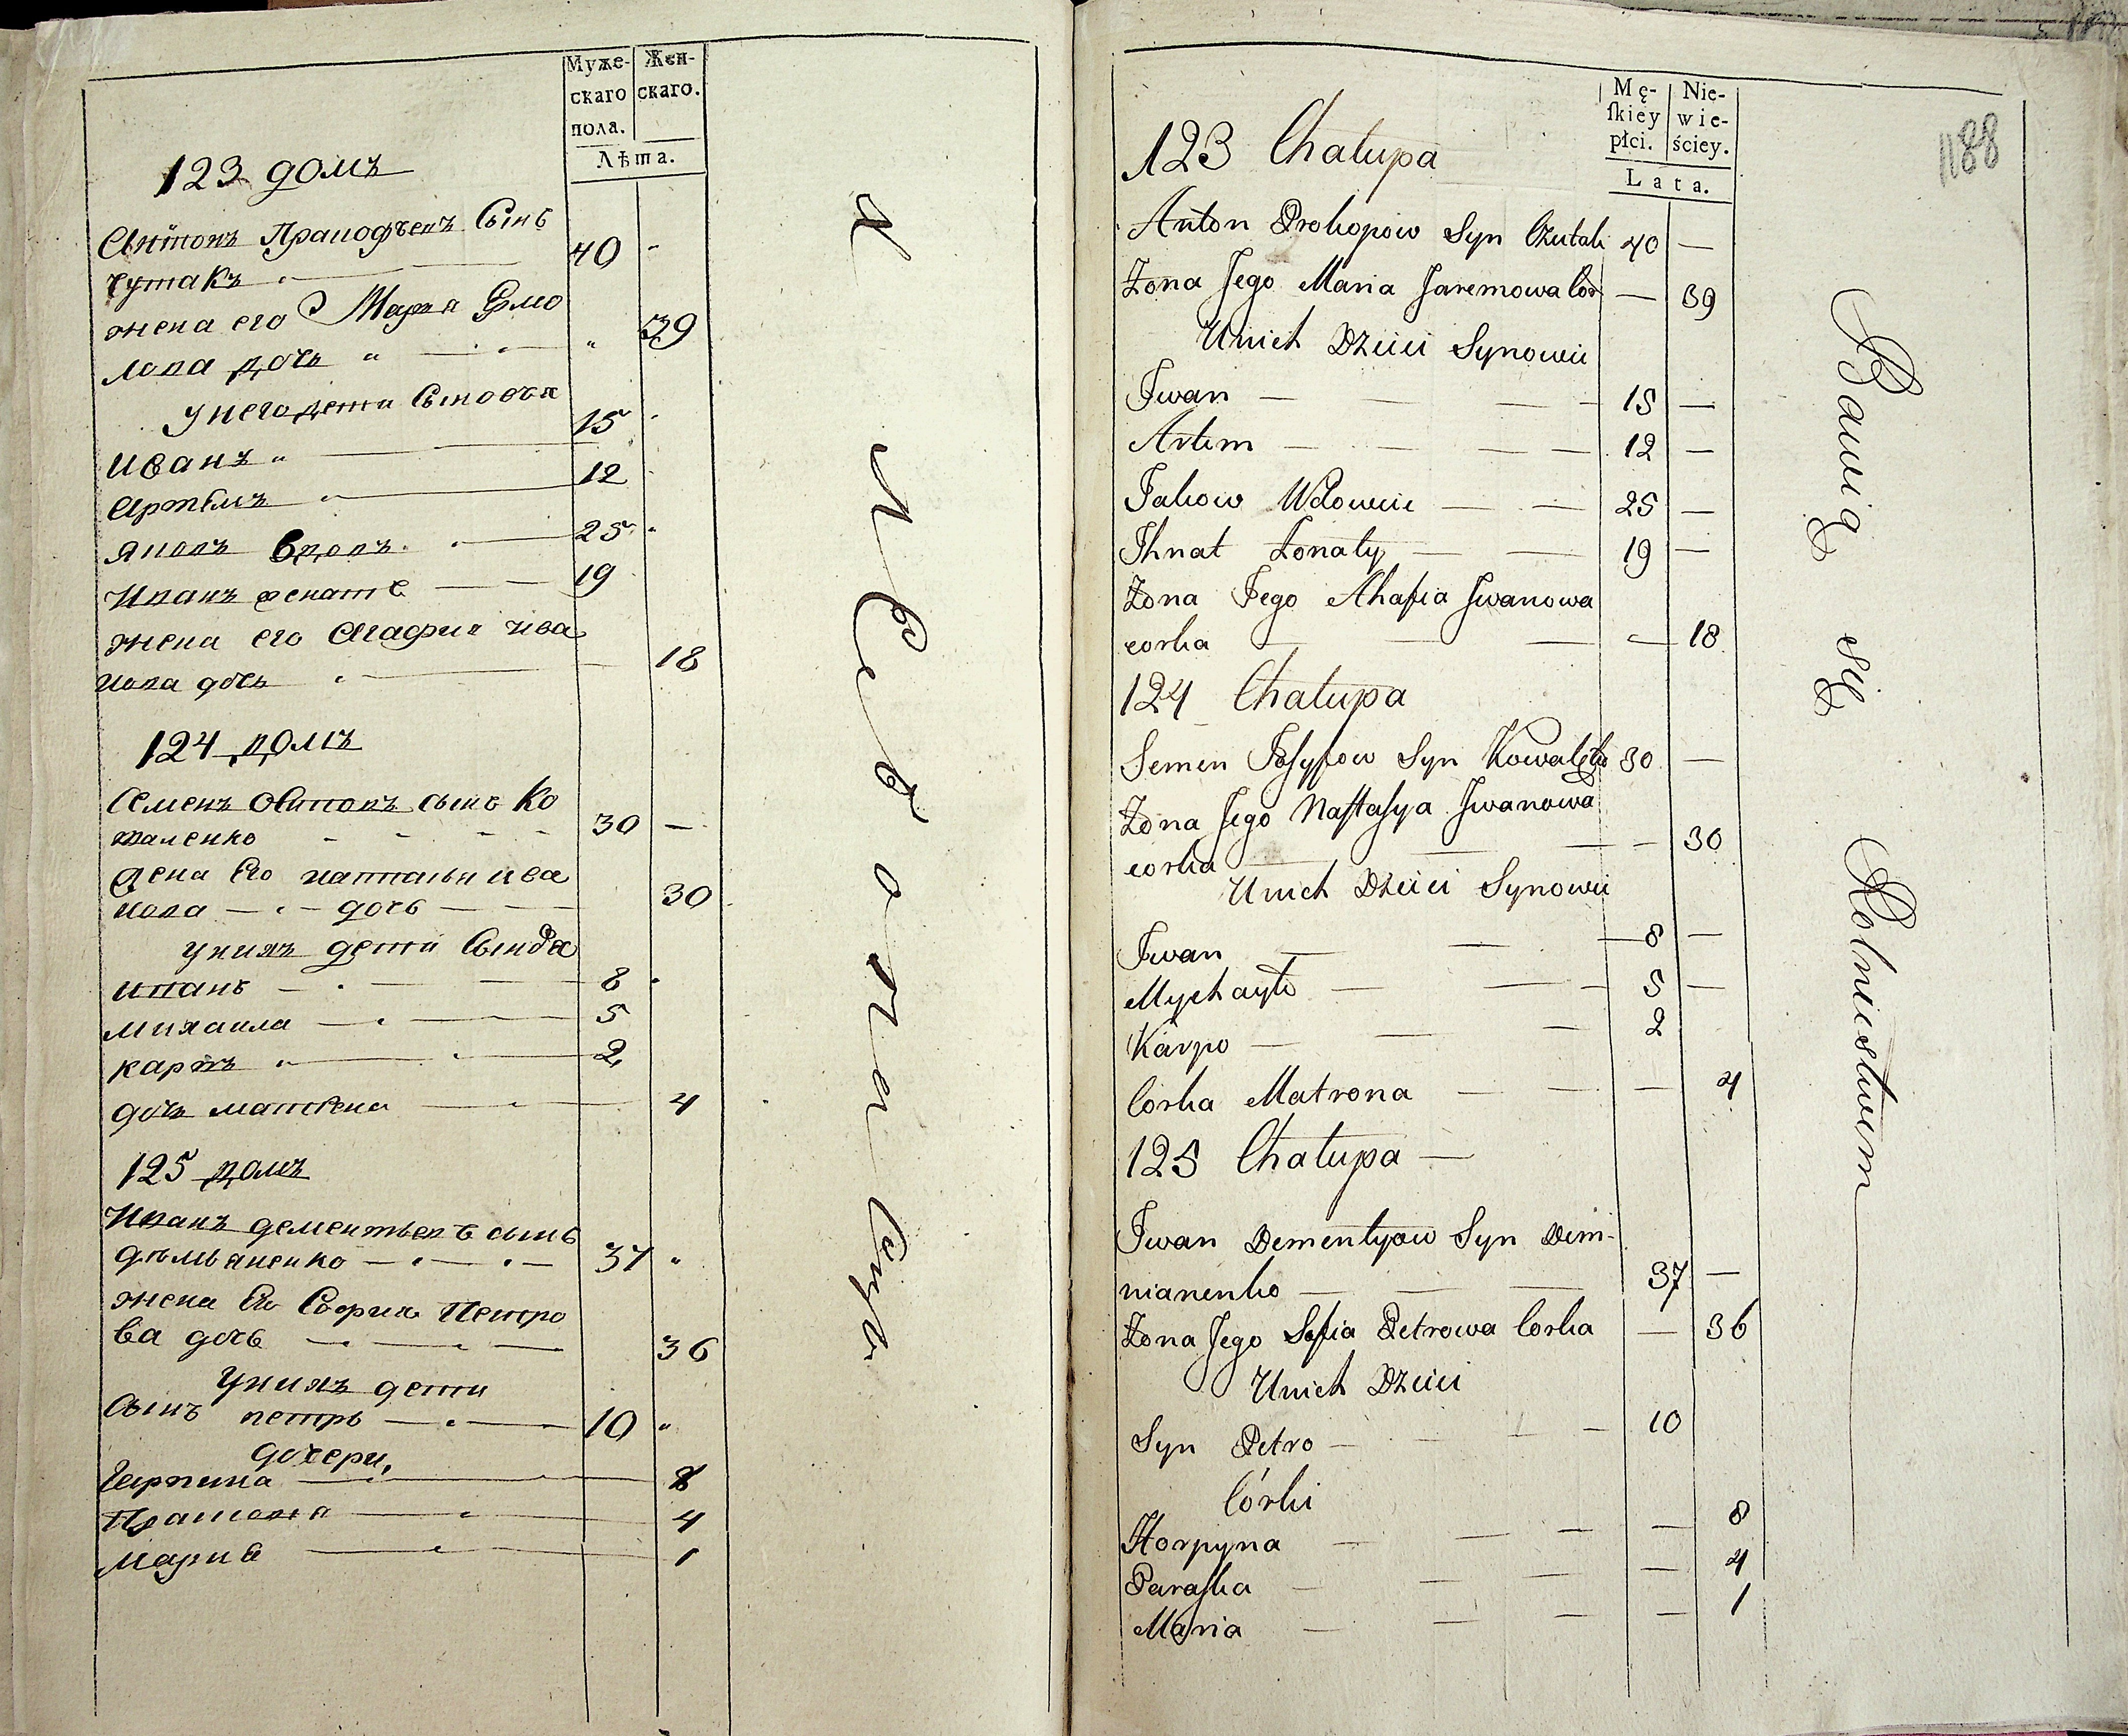 Муже-
скаго
пола.
Жен-
скаго.
Лѣта.
123 домъ
Антонъ Пракофьевъ Сынъ
чутакъ 40
жена его Марья Ермо
лова дочь 39
у него дети Сыновья
Иванъ 15
Артемъ 12
Яковъ вдовъ 25
Иванъ женатъ 19
жена его Агафия ива
нова дочь 18
124 домъ
Семенъ сынъ Ко
валенко 30 —
жена Его наталья ива
нова дочь 30
у нихъ дети Сынове
иванъ 8
михаила 5
карпъ 2
дочь матрена 4
125 домъ
Иванъ дементьевъ сынъ
демьяненко 37
жена Его София Петро
ва дочь 36
У нихъ дети
Сынъ петръ 10
дочери,
Гарпина 8
Прасковя 4
Мария 1
Mę-
ſkiey
płci.
Nie-
wie-
ściey.
Lata.
1188
123 Chałupa
Anton Prokopow Syn Czutak 40 —
Żona Jego Maria Jaremowa Cor — 39
Unich Dzieci Synowie
Iwan — 15 —
Artem — 12 —
Jakow Wdowiec — 25 —
Ihnat Żonaty — 19 —
Żona Jego Ahafia Iwanowa
corka — 18
124 Chałupa
Semen Josypow Syn Kowalęko 30 —
Żona Jego Naſtaſya Iwanowa
corka — 30
Unich Dzieci Synowie
Iwan — 8 —
Mychayło — 5 —
Karpo — 2
Corka Matrona — 4
125 Chałupa —
Iwan Dementyow Syn Dem-
nianenko — 37 —
Żona Jego Sofia Petrowa Corka — 36
Unich Dzieci
Syn Petro — 10
Córki
Horpyna — 8
Paraſka — 4
Maria — 1
Bawią się Rolnictwem